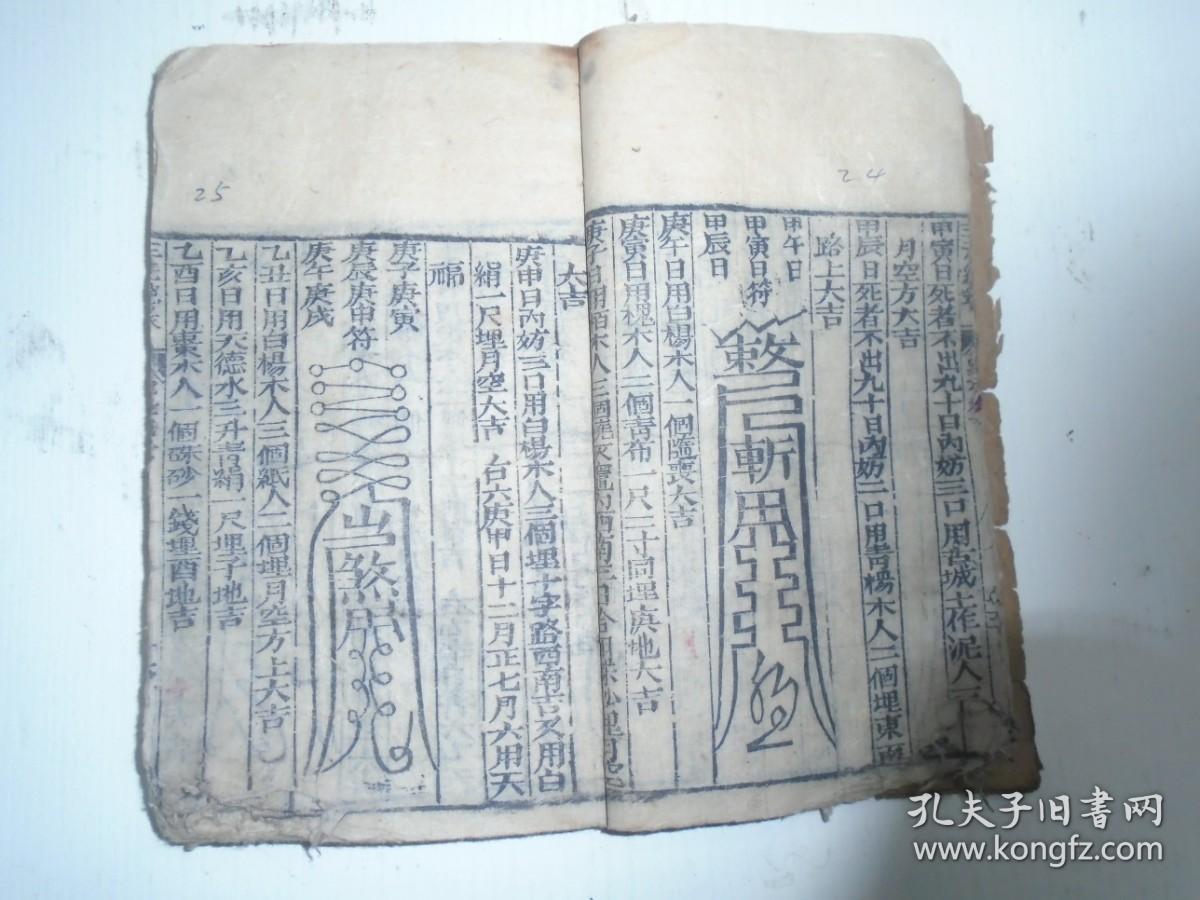 24
甲寅日死者不出九十日內妨三口用古城土作泥人三
月空方大吉
甲辰日死者不出九十日內妨二口用青楊木人二個埋東南
路上大吉
甲午日
甲寅日符
甲辰日
敕
斬
用
庚午日用白楊木人一個隨喪大吉
庚寅日用槐木人二個青布一尺二寸同埋庚地大吉
庚子日用栢木人三個
25
大吉
庚申日內妨三口用白楊木人三個埋十字路西南吉又用白
絹一尺埋月空大吉 台六庚甲日十二月正七月六用天
福
庚子庚寅
庚辰庚申符
庚午庚戌
煞
乙丑日用白楊木人三個紙人二個埋月空方上大吉
乙亥日用天德水三升青絹一尺埋子地吉
乙酉日用棗木人一個硃砂一錢埋酉地吉
孔夫子旧书网
www.kongfz.com